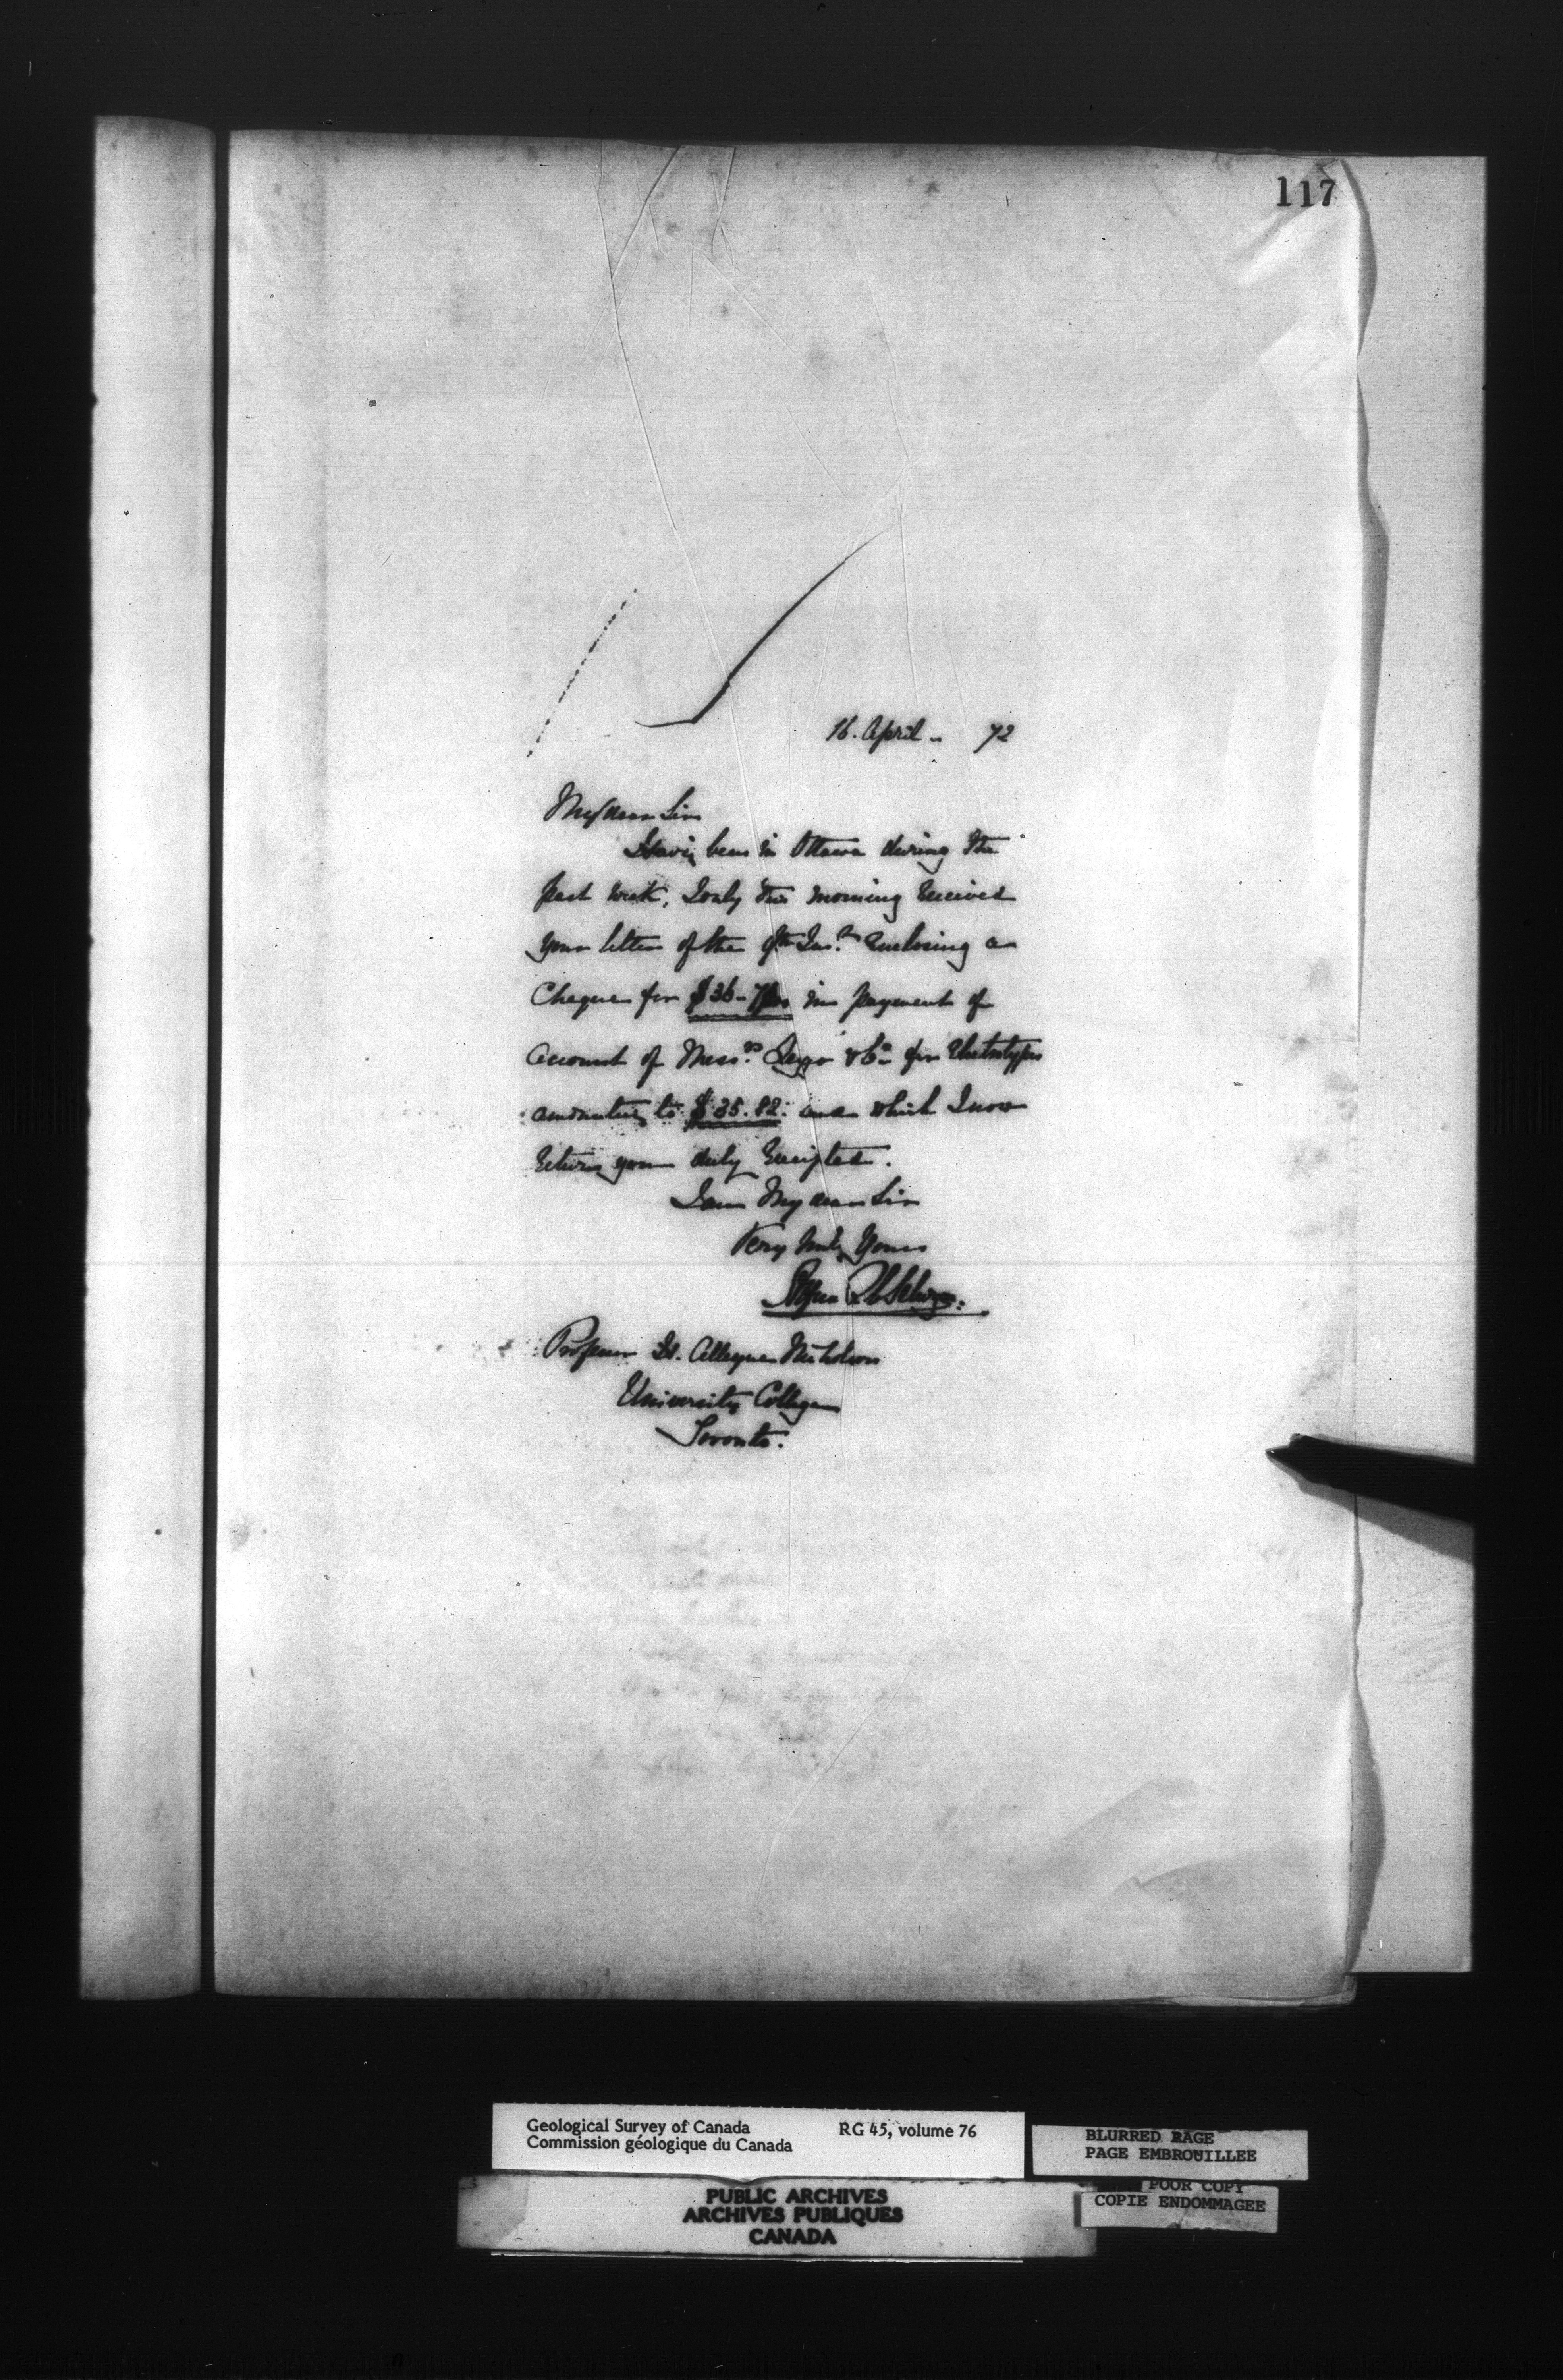 117
16. April - 72
My dear Sir
Having been in Ottawa during the
past week, I only this morning received
your letter of the 9th Inst. enclosing a
Cheque for $36- in payment of
account of Messrs. Leggo & Co. for Electrotypes
amounting to $35.82. and which I now
return you duly receipted.
I am My dear Sir
Very truly Yours
Alfred R C Selwyn.
Professor H. Alleyne Nicholson
University College
Toronto.
Geological Survey of Canada RG 45, volume 76
Commission géologique du Canada
BLURRED PAGE
PAGE EMBROUILLEE
POOR COPY
COPIE ENDOMMAGEE
PUBLIC ARCHIVES
ARCHIVES PUBLIQUES
CANADA